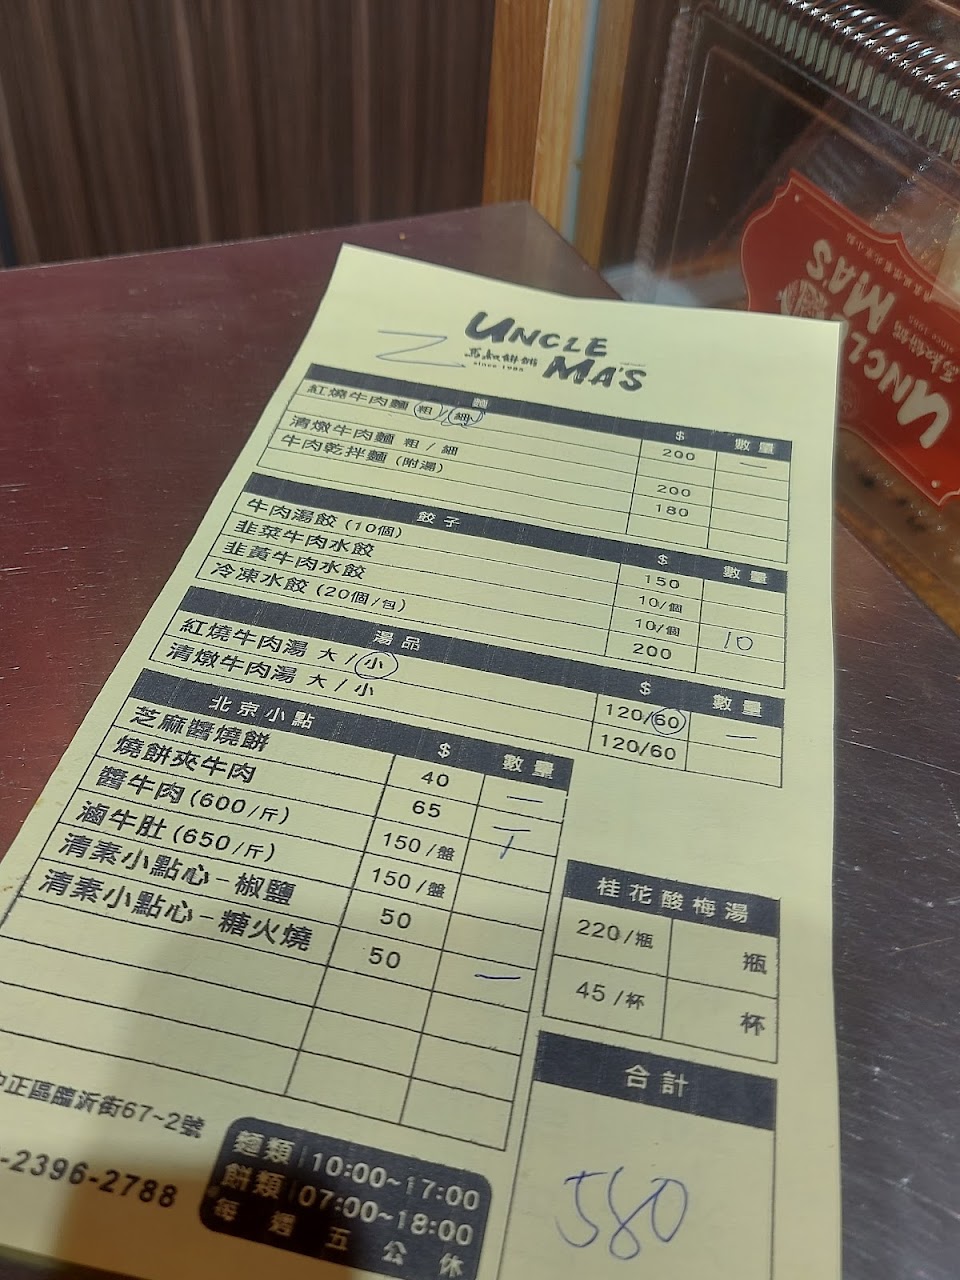 UNCLE
MA'S
馬叔餅舖
since 1985
麵 $ 數量
紅燒牛肉麵 粗/細 200 一
清燉牛肉麵 粗/細 200
牛肉乾拌麵 (附湯) 180
餃子 $ 數量
牛肉湯餃 (10個) 150
韭菜牛肉水餃 10/個
韭黃牛肉水餃 10/個 10
冷凍水餃 (20個/包) 200
湯品 $ 數量
紅燒牛肉湯 大/小 120/60 一
清燉牛肉湯 大/小 120/60
北京小點 $ 數量
芝麻醬燒餅 40 一
燒餅夾牛肉 65 T
醬牛肉 (600/斤) 150/盤
滷牛肚 (650/斤) 150/盤
清素小點心-椒鹽 50
清素小點心-糖火燒 50 一
桂花酸梅湯
220/瓶 瓶
45/杯 杯
合計
580
中正區臨沂街67~2號
-2396-2788
麵類|10:00~17:00
餅類|07:00~18:00
每週五公休
UNCLE
MA'S
SINCE 1985